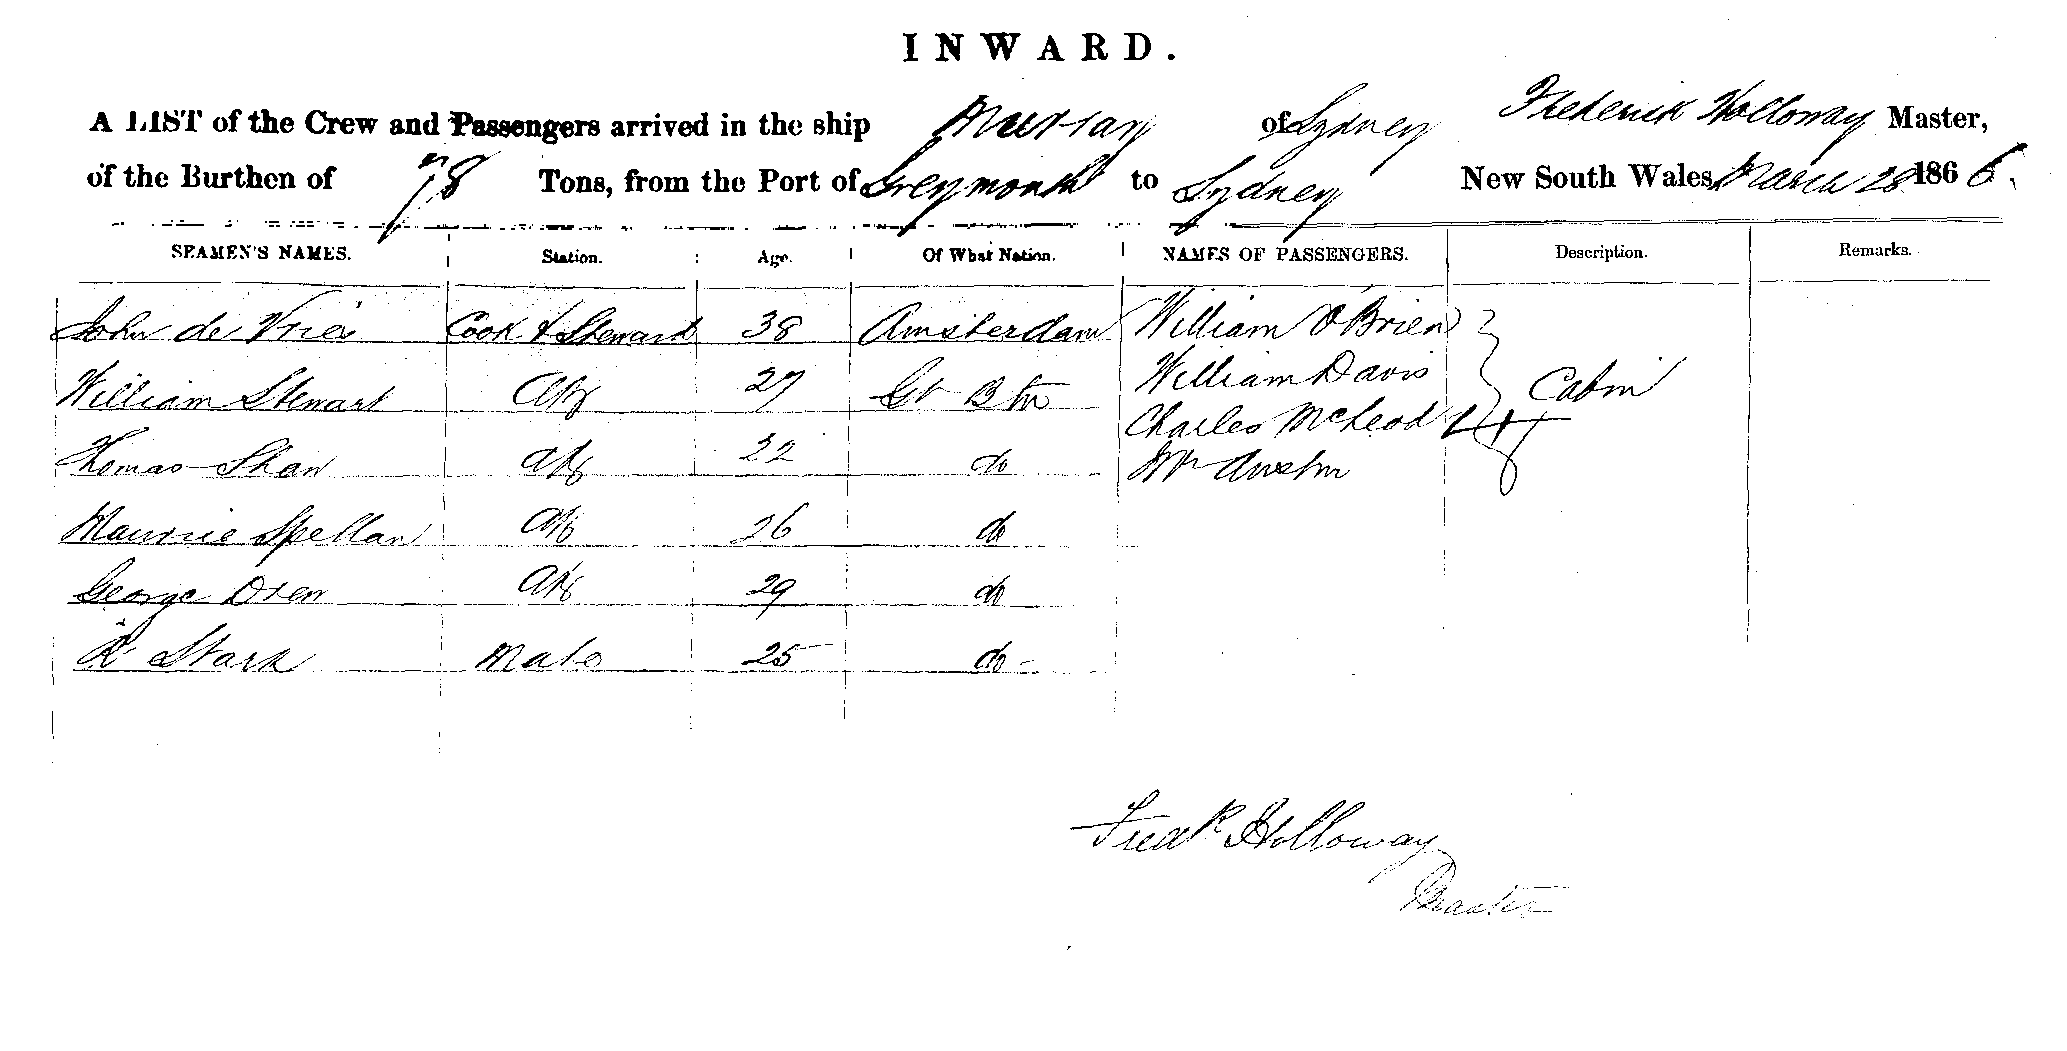 INWARD.
A LIST of the Crew and Passengers arrived in the ship Murray of Sydney Frederick Holloway Master,
of the Burthen of 78 Tons, from the Port of Greymouth to Sydney New South Wales, March 28 1866.
SEAMEN'S NAMES. Station. Age. Of What Nation. NAMES OF PASSENGERS. Description. Remarks.
John de Vries Cook & Steward 38 Amsterdam William O'Brien
William Stewart AB 27 Gt Btn William Davis Cabin
Charles McLeod
Thomas Shaw AB 22 do Mr Austin
Maurice Spellan AB 26 do
George Oren AB 29 do
R Stark Mate 25 do
Fredk Holloway
Master